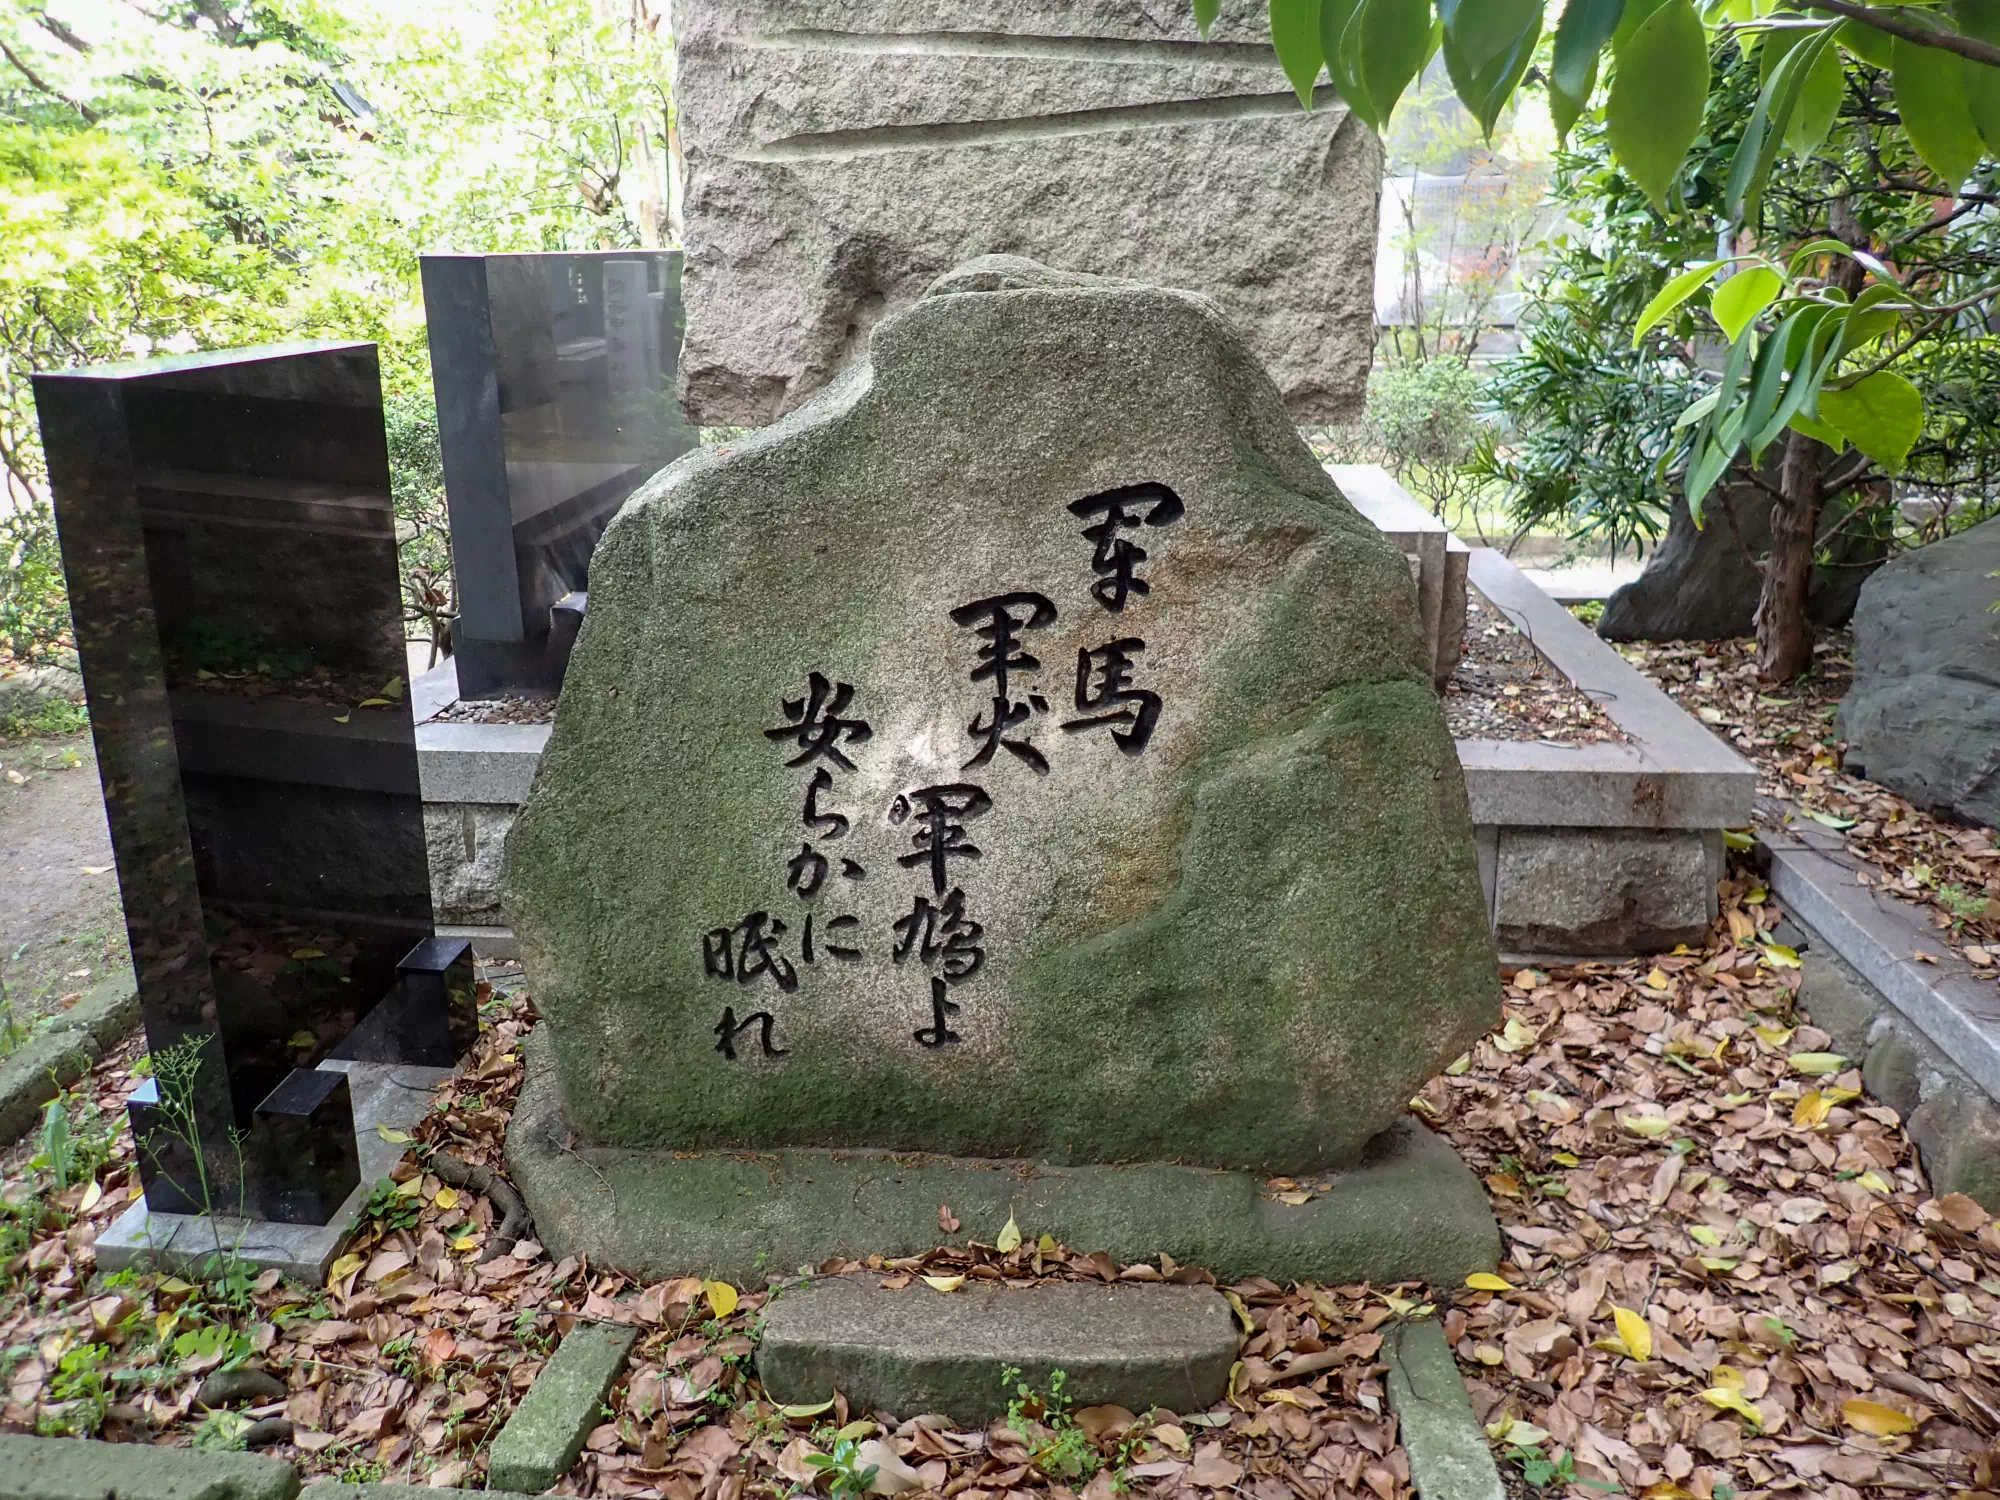 軍馬
軍犬
軍鳩よ
安らかに
眠れ